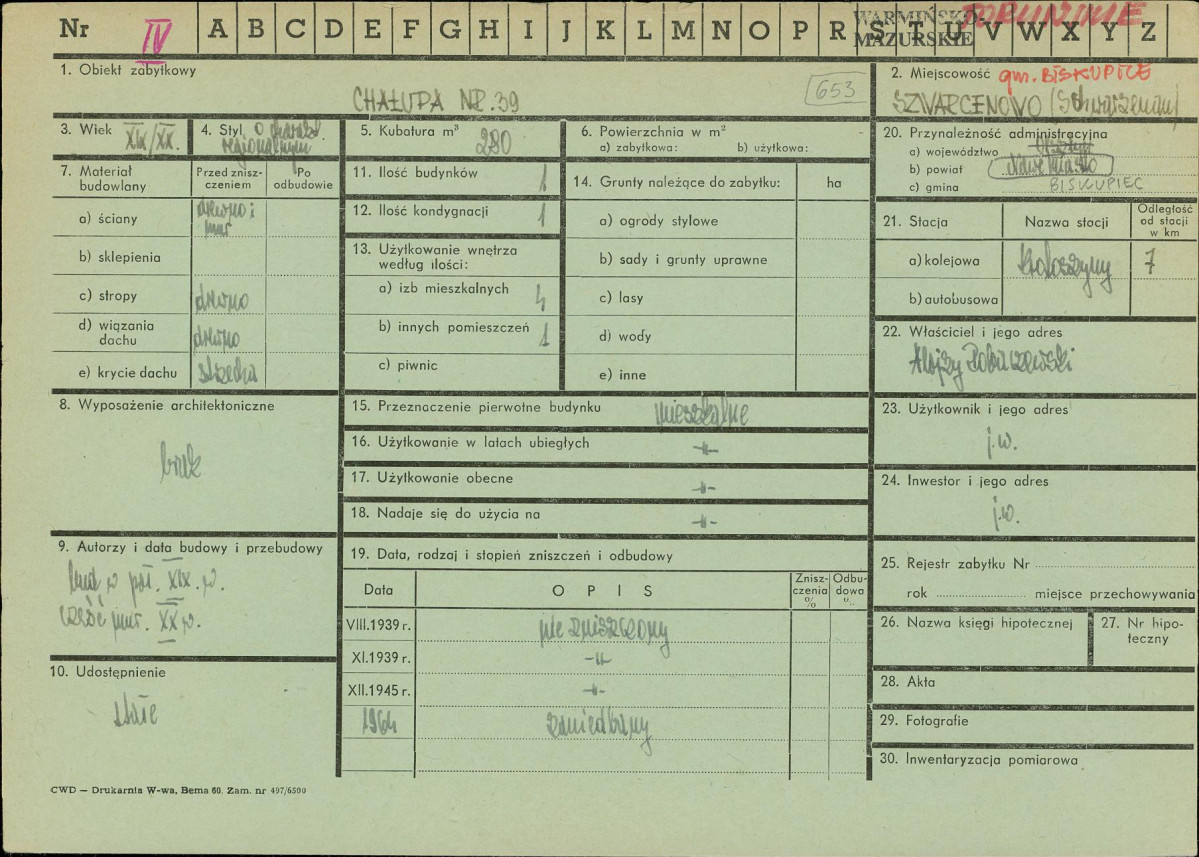 Nr IV A B C D E F G H I J K L M N O P R S T U V W X Y Z
WARMIŃSKO-
MAZURSKIE
1. Obiekt zabytkowy
CHAŁUPA NR. 39
653
2. Miejscowość gm. BISKUPICE
SZWARCENOWO
3. Wiek XIX/XX.
4. Styl o charakt.
regionalnym
5. Kubatura m³ 280
6. Powierzchnia w m²
a) zabytkowa: b) użytkowa:
7. Materiał
budowlany
Przed znisz-
czeniem
Po
odbudowie
a) ściany drewno i
mur
b) sklepienia
c) stropy drewno
d) wiązania
dachu drewno
e) krycie dachu strzecha
8. Wyposażenie architektoniczne
brak
9. Autorzy i data budowy i przebudowy
w poł. XIX. w.
część mur. XX w.
10. Udostępnienie
stałe
11. Ilość budynków 1
12. Ilość kondygnacji 1
13. Użytkowanie wnętrza
według ilości:
a) izb mieszkalnych 4
b) innych pomieszczeń 1
c) piwnic
14. Grunty należące do zabytku: ha
a) ogrody stylowe
b) sady i grunty uprawne
c) lasy
d) wody
e) inne
15. Przeznaczenie pierwotne budynku mieszkalne
16. Użytkowanie w latach ubiegłych -"-
17. Użytkowanie obecne -"-
18. Nadaje się do użycia na -"-
19. Data, rodzaj i stopień zniszczeń i odbudowy
Data OPIS Znisz-
czenia
% Odbu-
dowa
%
VIII.1939 r. nie zniszczony
XI.1939 r. -"-
XII.1945 r. -"-
1964 zaniedbany
20. Przynależność administracyjna
a) województwo
b) powiat Nowe Miasto
c) gmina BISKUPIEC
21. Stacja Nazwa stacji Odległość
od stacji
w km
a) kolejowa 7
b) autobusowa
22. Właściciel i jego adres
Alojzy
23. Użytkownik i jego adres
j.w.
24. Inwestor i jego adres
j.w.
25. Rejestr zabytku Nr
rok miejsce przechowywania
26. Nazwa księgi hipotecznej
27. Nr hipo-
teczny
28. Akta
29. Fotografie
30. Inwentaryzacja pomiarowa
CWD — Drukarnia W-wa, Bema 60. Zam. nr 497/6500